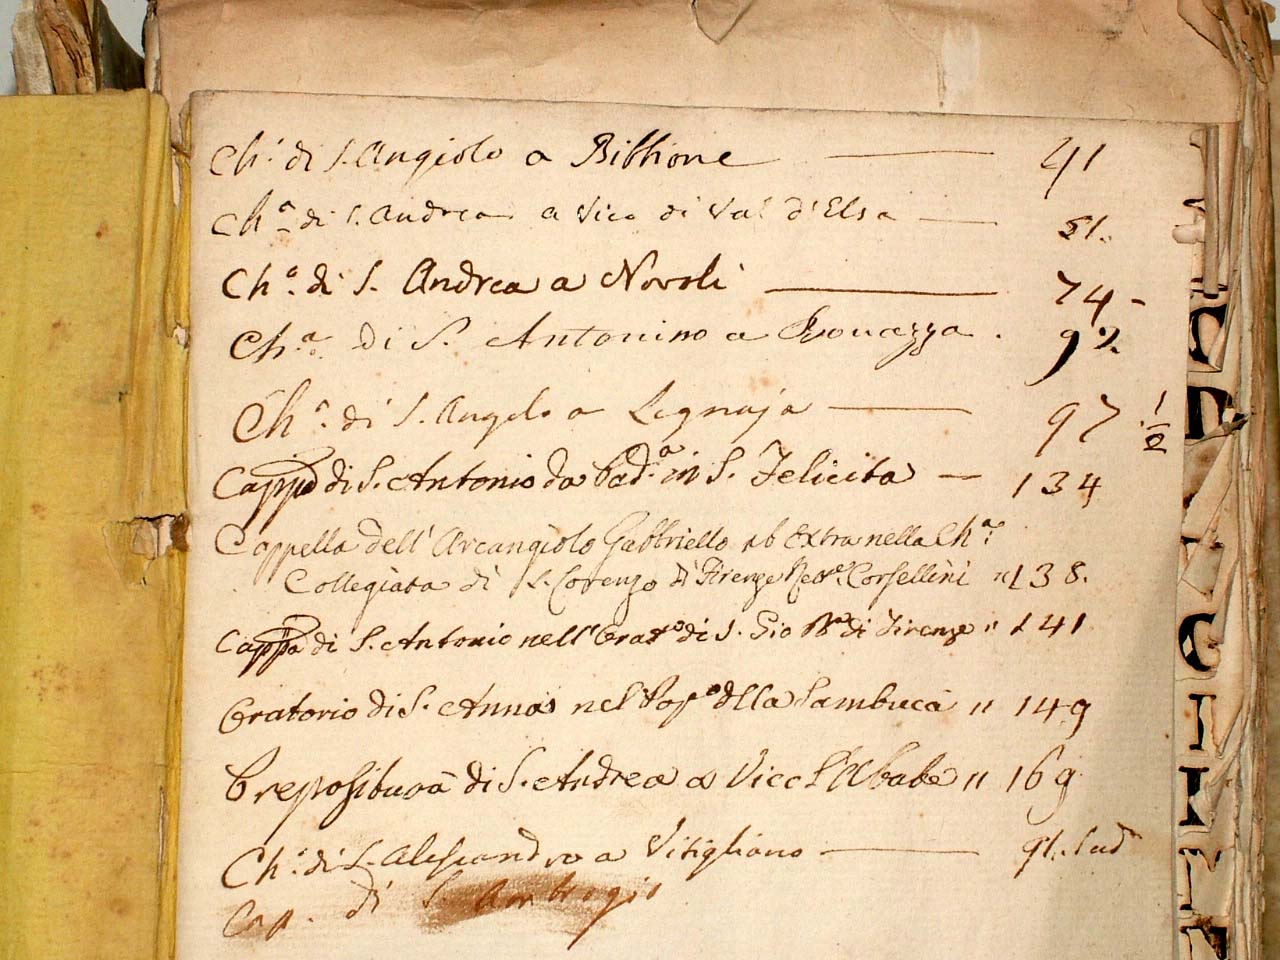 Ch.ª di S. Angiolo a Bibbione 41
Ch.ª di S. Andrea a Vico di Val d'Elsa 51.
Ch.ª di S. Andrea a Novoli 74
Ch.ª di S. Antonino a 92.
Ch.ª di S. Angelo a Legnaja 97 1/2
Capp.ª di S. Antonio da Pad.ª in S. Felicita 134
Cappella dell' Arcangiolo Gabbriello ab Extra nella Ch.ª
Collegiata di S. Lorenzo di Firenze Corsellini " 138.
Capp.ª di S. Antonio nell' Orat.º di S. Gio Bª di Firenze " 141
Oratorio di S. Anna nel Pop.º della Sambuca " 149
Prepositura di S. Andrea a Vico L'Abate " 169
Ch.ª di S. Alessandro a Vitigliano 91.
Cap. di S. Ambrogio
G
I
K